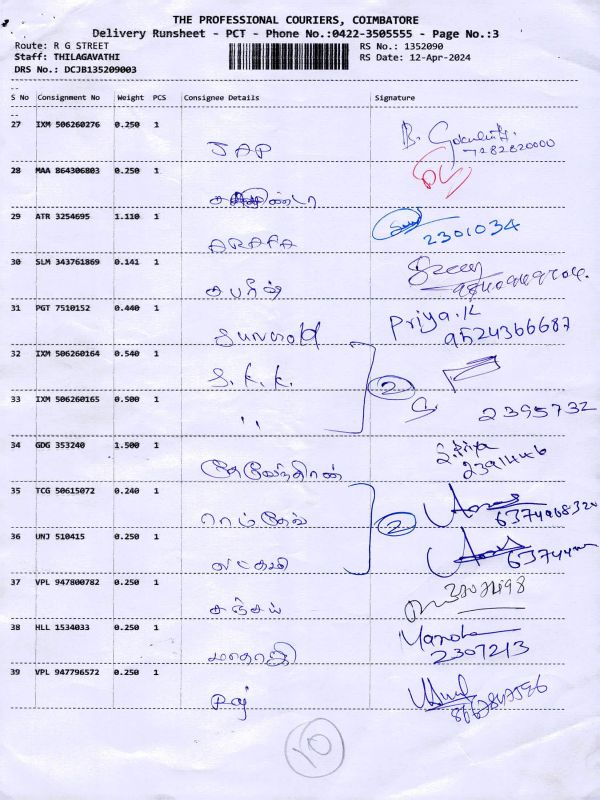 THE PROFESSIONAL COURIERS, COIMBATORE
Delivery Runsheet - PCT - Phone No.:0422-3505555 - Page No.:3
Route: R G STREET RS No.: 1352090
Staff: THILAGAVATHI RS Date: 12-Apr-2024
DRS No.: DCJB135209003
S No Consignment No Weight PCS Consignee Details Signature
27 IXM 506260276 0.250 1
JAP 7282820000
28 MAA 864306803 0.250 1
29 ATR 3254695 1.110 1
ARAFA 2301034
30 SLM 343761869 0.141 1
சபரீன்
31 PGT 7510152 0.440 1 Priya.K
Sunworld 9524366687
32 IXM 506260164 0.540 1
S.K.K. 2
33 IXM 506260165 0.500 1
,, 2395732
34 GDG 353240 1.500 1
தேவேந்திரன்
35 TCG 50615072 0.240 1
ராம்தேவ் 2
36 UNJ 510415 0.250 1
37 VPL 947800782 0.250 1
சஞ்சய்
38 HLL 1534033 0.250 1
2307213
39 VPL 947796572 0.250 1
Raj
10